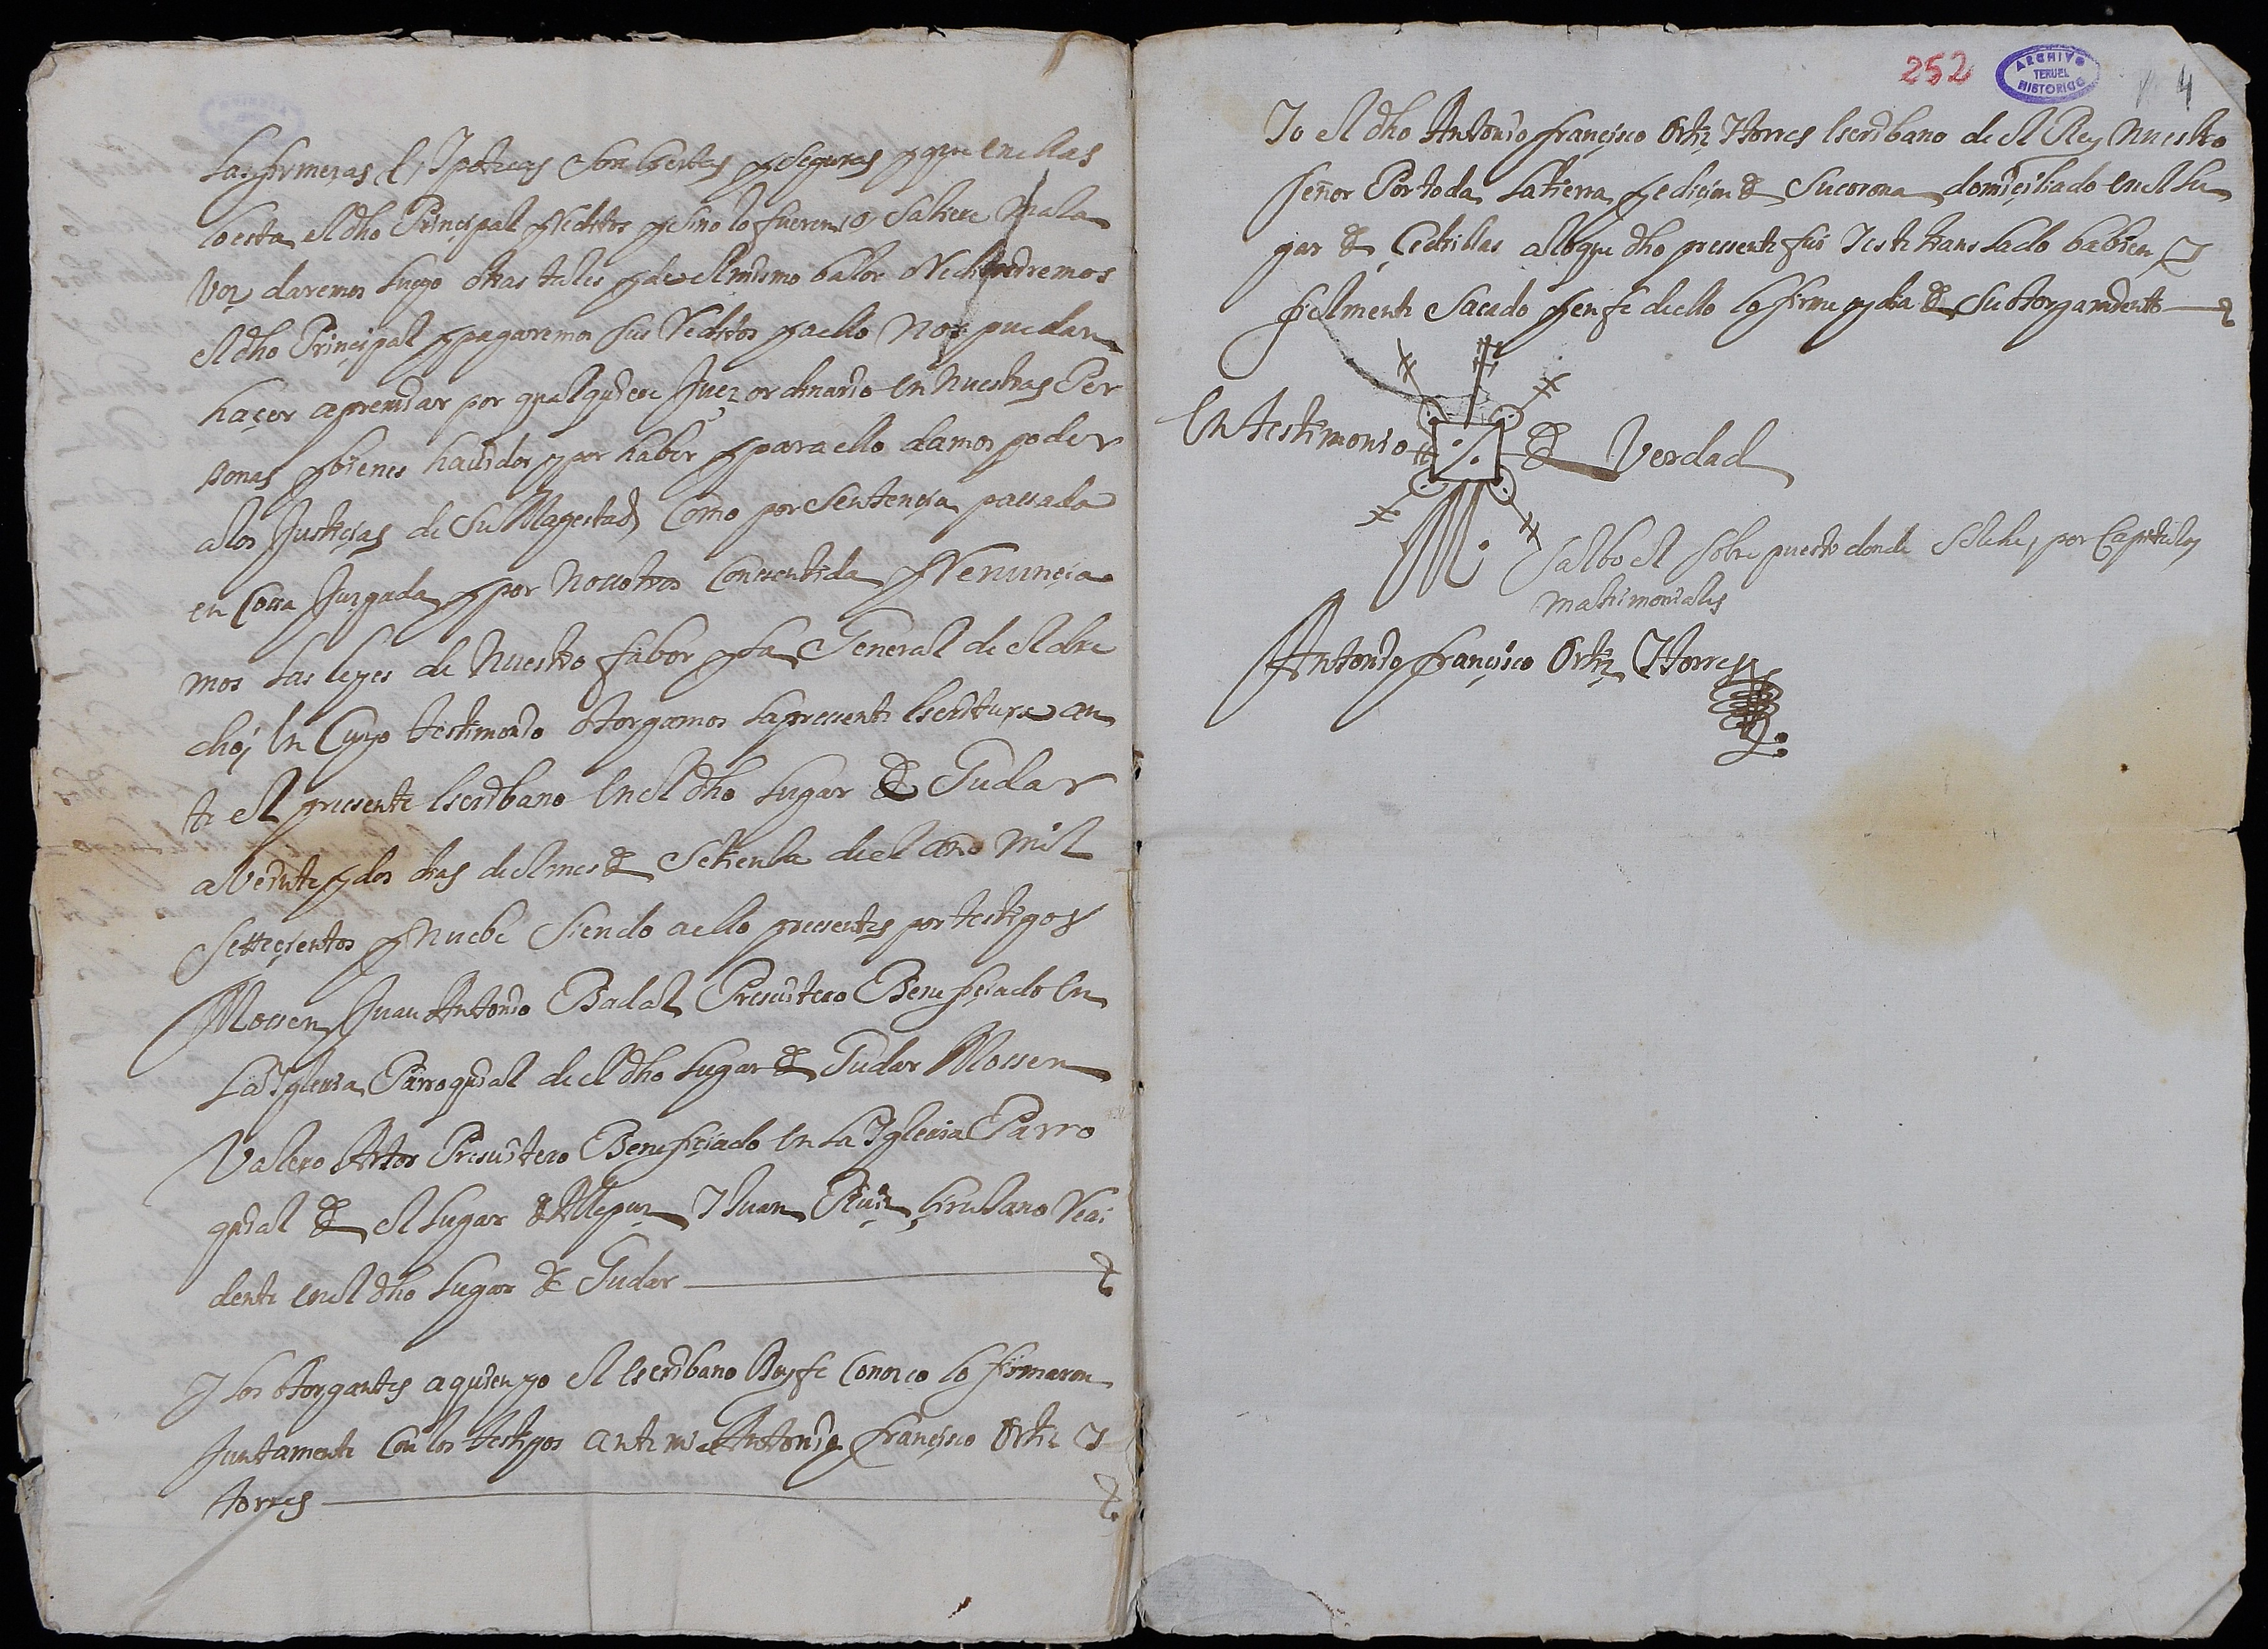 las firmezas E Ipotecas son ciertas y seguras y que en ellas
lo esta el dho Principal y reditos y si no lo fueren o saliere mala
voz daremos luego otras tales y de el mismo balor o redimiremos
el dho Principal y pagaremos sus reditos y a ello nos puedan
haçer apremiar por qualquiere Juez ordinario en nuestras Per
sonas y bienes hauidos y por haber y para ello damos poder
a los Justiçias de Su Magestad Como por sentençia passada
en Cossa Juzgada y por nosotros Conssentida y Renunçia
mos las leyes de nuestro fabor y la General de el dre
cho, En Cuyo testimonio otorgamos la pressente Escritura an
te el pressente Escribano En el dho Lugar de Gudar
a veinte y dos dias de el mes de Setiembre de el año mil
Setteçientos y nuebe Siendo a ello pressentes por testigos
Mossen Juan Antonio Badal Presuitero Benefiçiado En
La Iglesia Parroquial de el dho Lugar de Gudar Mossen
Valero Artos Presuitero Benefiçiado En La Iglesia Parro
quial de el Lugar de Allepuz Y Juan Ruiz Çirujano Resi
dente en el dho Lugar de Gudar
Y los otorgantes a quien yo el Escribano Doy fe Conozco lo firmaron
Juntamente Con los testigos ante mi Antonio Françisco Ortiz Y
torres
252
ARCHIVO
TERUEL
HISTORICO
4
Yo el dho Antonio Françisco Ortiz Y torres Escribano de el Rey Nuestro
señor Por toda la tierra y dicion de Su corona domiçiliado en el Lu
gar de Çedrillas a lo que dho pressente fui Y este translado ha bien Y
fielmente Sacado y en fe de ello lo firme oy dia de su otorgamiento
En testimonio de Verdad
Salbo el sobre puesto donde Se lehe, por Capitules
matrimoniales
Antonio Françisco Ortiz Y torres